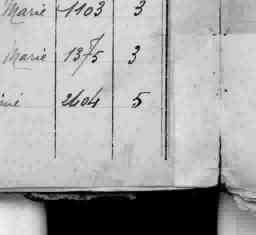 Marie 1103 3
Marie 1375 3
2604 5